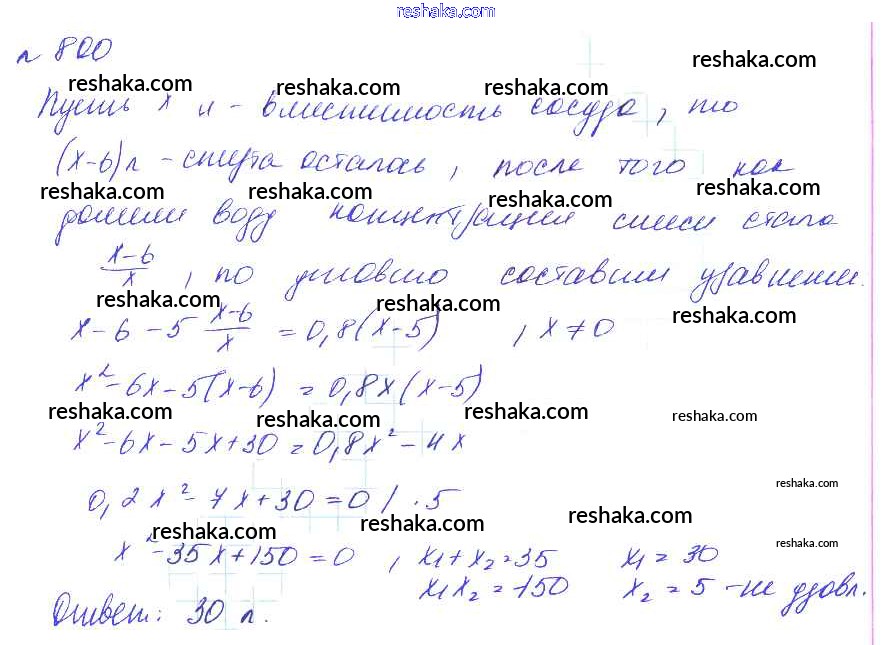 reshaka.com
№ 800
reshaka.com
reshaka.com reshaka.com reshaka.com
Пусть x л - вместимость сосуда, то
(x-6) л - спирта осталось, после того как
reshaka.com reshaka.com reshaka.com reshaka.com
долили воду концентрация смеси стала
x-6/x, по условию составим уравнение.
reshaka.com reshaka.com reshaka.com
x - 6 - 5 x-6/x = 0,8(x-5) , x ≠ 0
x² - 6x - 5(x-6) = 0,8x(x-5)
reshaka.com reshaka.com reshaka.com reshaka.com
x² - 6x - 5x + 30 = 0,8x² - 4x
reshaka.com
0,2x² - 7x + 30 = 0 / · 5
reshaka.com reshaka.com reshaka.com reshaka.com
x² - 35x + 150 = 0 , x₁ + x₂ = 35 x₁ = 30
x₁x₂ = 150 x₂ = 5 - не удовл.
Ответ: 30 л.